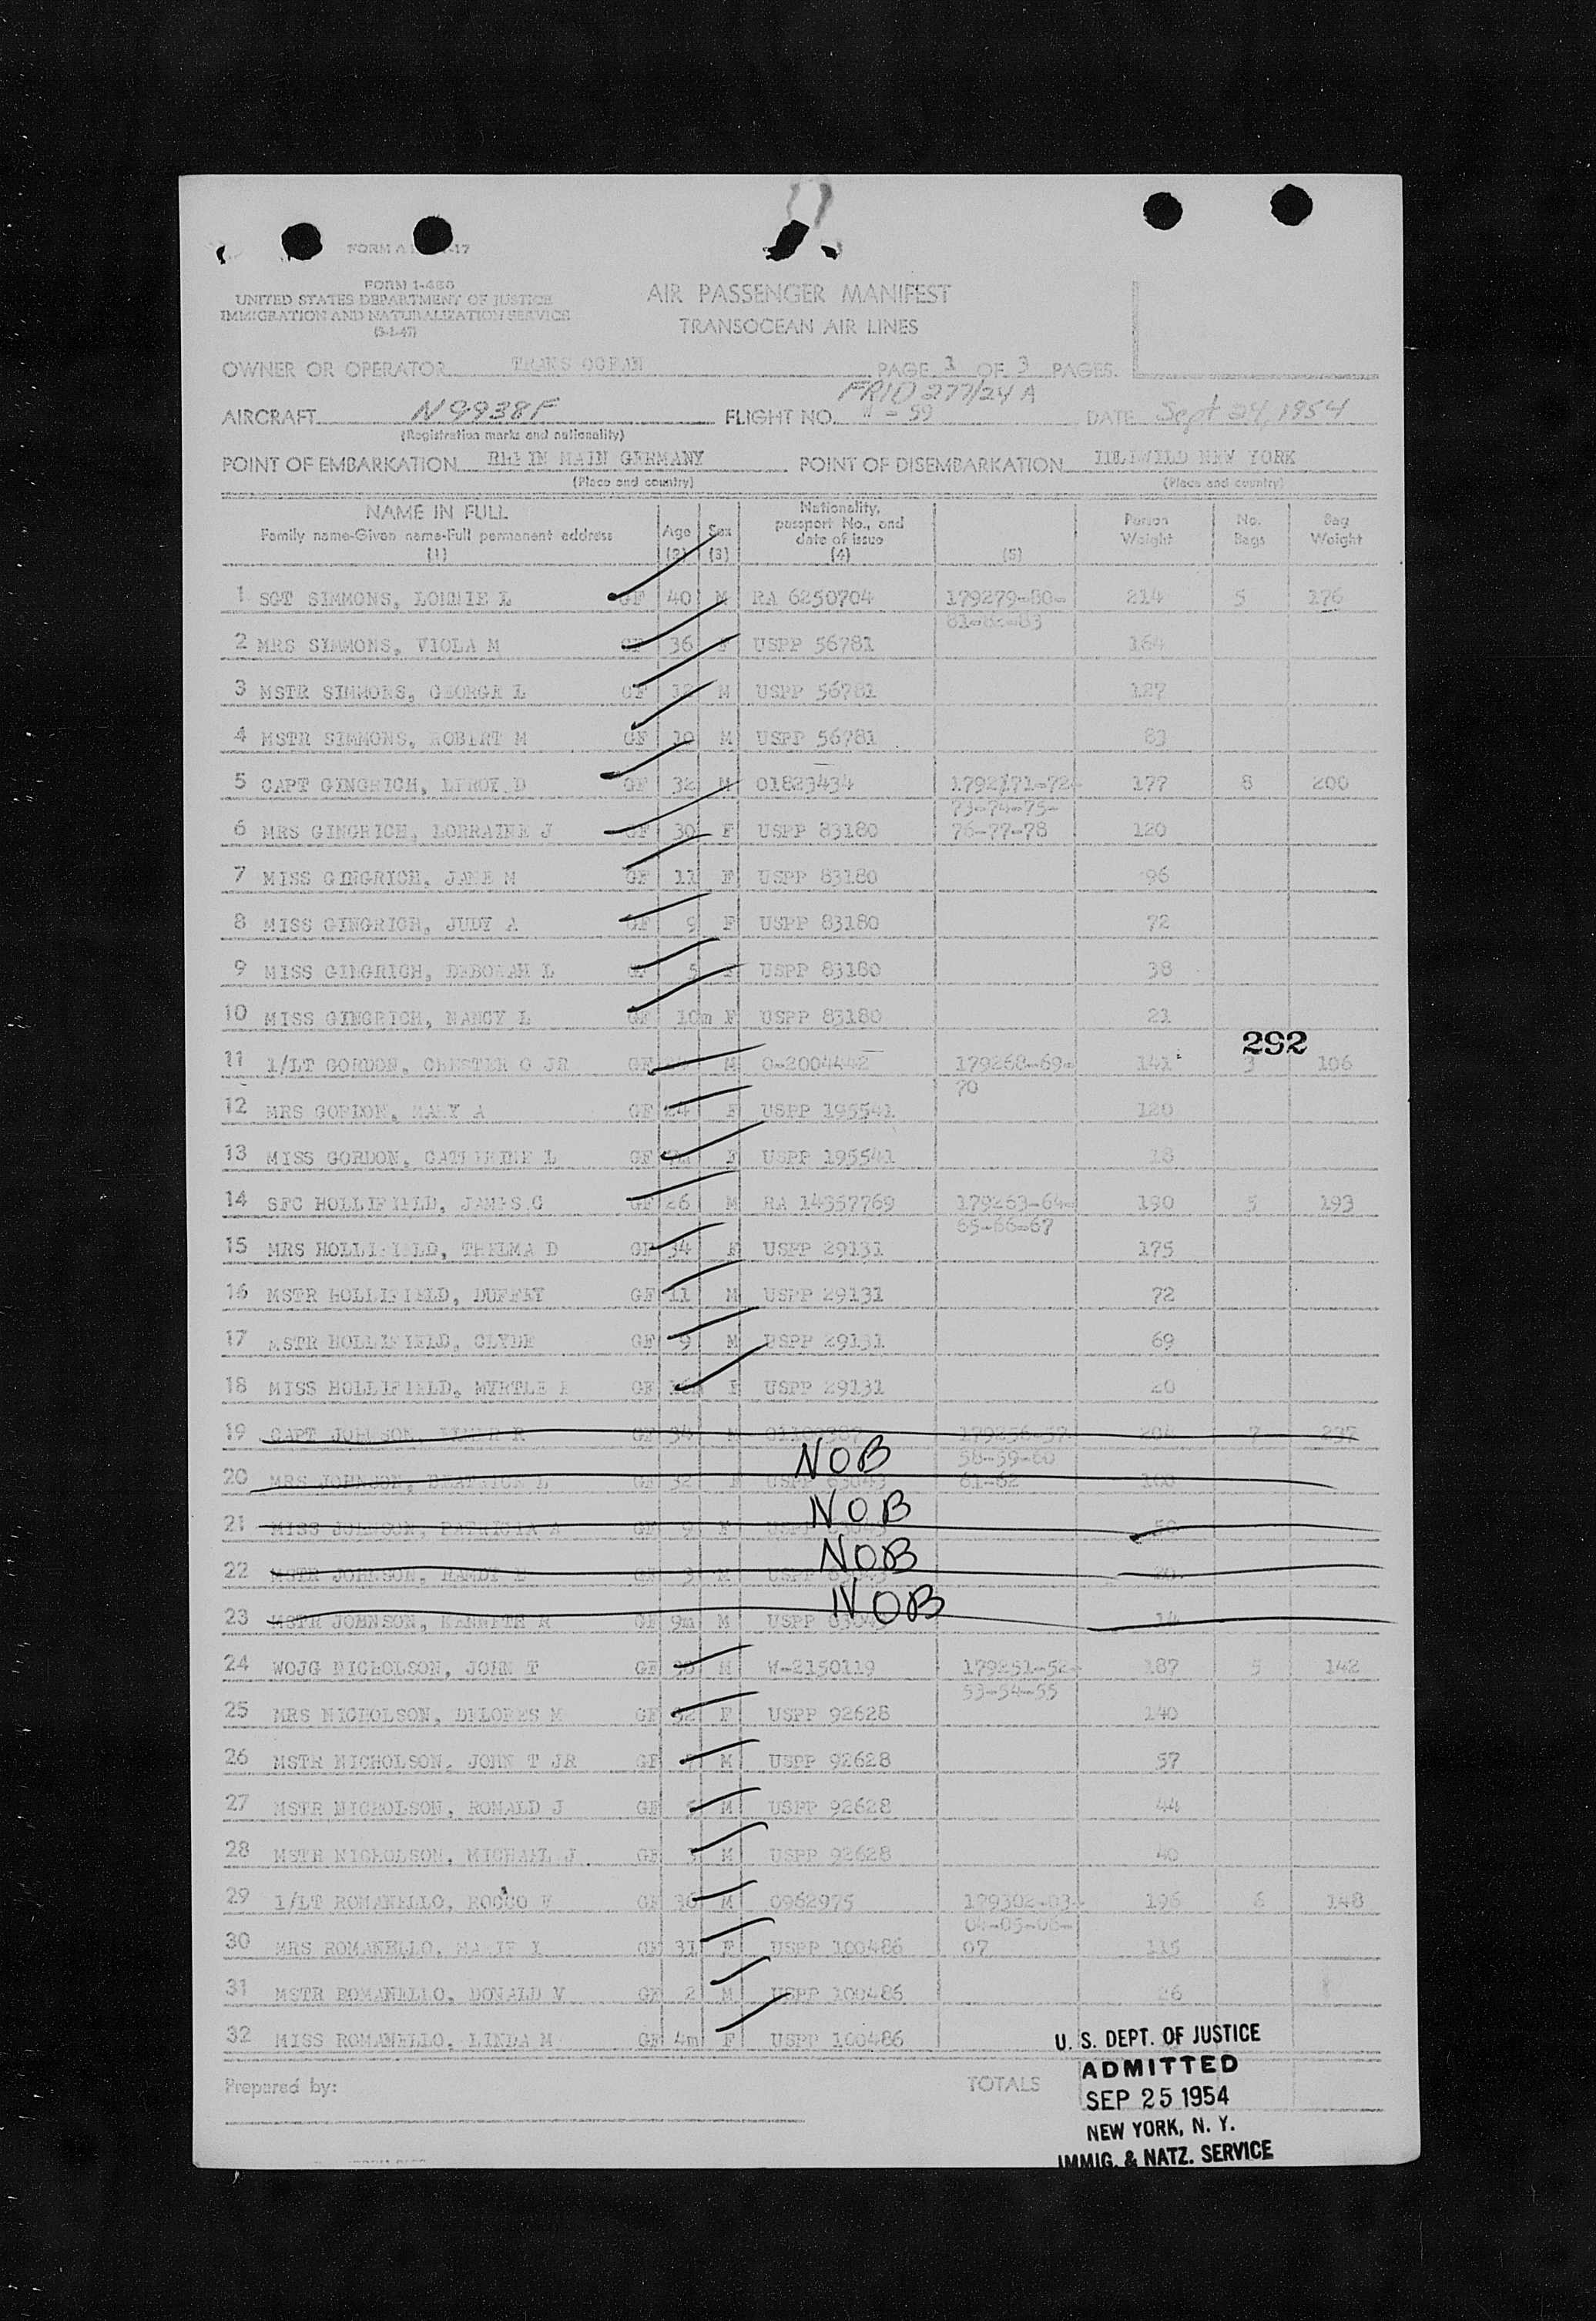 FORM 1-466
UNITED STATES DEPARTMENT OF JUSTICE
IMMIGRATION AND NATURALIZATION SERVICE
(3-1-47)
AIR PASSENGER MANIFEST
TRANSOCEAN AIR LINES
OWNER OR OPERATOR TRANS OCEAN PAGE 1 OF 3 PAGES.
FRIO 277/24 A
AIRCRAFT N9938F FLIGHT NO. W - 99 DATE Sept 24, 1954
(Registration marks and nationality)
POINT OF EMBARKATION RHEIN MAIN GERMANY POINT OF DISEMBARKATION IDLEWILD NEW YORK
(Place and country) (Place and country)
NAME IN FULL Family name-Given name-Full permanent address (1) Age (2) Sex (3) Nationality, passport No., and date of issue (4) (5) Person Weight No. Bags Bag Weight
1 SGT SIMMONS, LONNIE L GF 40 M RA 6250704 179279-80- 214 5 176
81-82-83
2 MRS SIMMONS, VIOLA M GF 36 F USPP 56781 164
3 MSTR SIMMONS, GEORGE L GF M USPP 56781 127
4 MSTR SIMMONS, ROBERT M GF 10 M USPP 56781 83
5 CAPT GINGRICH, LEROY D GF 32 M 01823434 179271-72- 177 8 200
73-74-75-
6 MRS GINGRICH, LORRAINE J GF 30 F USPP 83180 76-77-78 120
7 MISS GINGRICH, JANE M GF 11 F USPP 83180 96
8 MISS GINGRICH, JUDY A GF 9 F USPP 83180 72
9 MISS GINGRICH, DEBORAH L GF 5 F USPP 83180 38
10 MISS GINGRICH, NANCY L GF 10m F USPP 83180 21
292
11 1/LT GORDON, CHESTER O JR GF M O-2004442 179268-69- 141 3 106
70
12 MRS GORDON, MARY A GF 24 F USPP 195541 120
13 MISS GORDON, CATHERINE L GF F USPP 195541 18
14 SFC HOLLIFIELD, JAMES G GF 26 M RA 14357769 179263-64- 190 5 193
65-66-67
15 MRS HOLLIFIELD, THELMA D GF 34 F USPP 29131 175
16 MSTR HOLLIFIELD, DUFFEY GF 11 M USPP 29131 72
17 MSTR HOLLIFIELD, CLYDE GF 9 M USPP 29131 69
18 MISS HOLLIFIELD, MYRTLE GF F USPP 29131 20
19 CAPT JOHNSON, R GF 34 M 179256-57- 204 7 237
NOB 58-59-60
20 MRS JOHNSON, BEATRICE L GF 32 F USPP 63049 61-62 100
NOB
21 MISS JOHNSON, PATRICIA A GF 9 F 50
NOB
22 MSTR JOHNSON, RANDY GF 3 M USPP
NOB
23 MSTR JOHNSON, KENNETH R GF 9m M USPP 14
24 WOJG NICHOLSON, JOHN T GF M W-2150119 179251-52- 187 5 142
53-54-55
25 MRS NICHOLSON, DELORES M GF 32 F USPP 92628 140
26 MSTR NICHOLSON, JOHN T JR GF M USPP 92628 57
27 MSTR NICHOLSON, RONALD J GF 5 M USPP 92628 44
28 MSTR NICHOLSON, MICHAEL J GF 3 M USPP 92628 40
29 1/LT ROMANELLO, ROCCO V GF 30 M 0962975 179302-03- 196 6 148
04-05-06-
30 MRS ROMANELLO, MARIE I GF 31 F USPP 100486 07 115
31 MSTR ROMANELLO, DONALD V GF 2 M USPP 100486 26
32 MISS ROMANELLO, LINDA M GF 4m F USPP 100486
Prepared by: TOTALS
U. S. DEPT. OF JUSTICE
ADMITTED
SEP 25 1954
NEW YORK, N. Y.
IMMIG. & NATZ. SERVICE